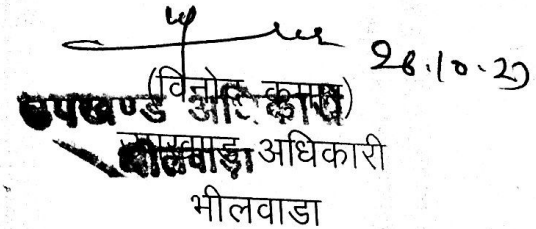 28.10.2)
(विनोद कुमार)
उपखण्ड अधिकारी
भीलवाडा
उपखण्ड अधिकारी
भीलवाडा